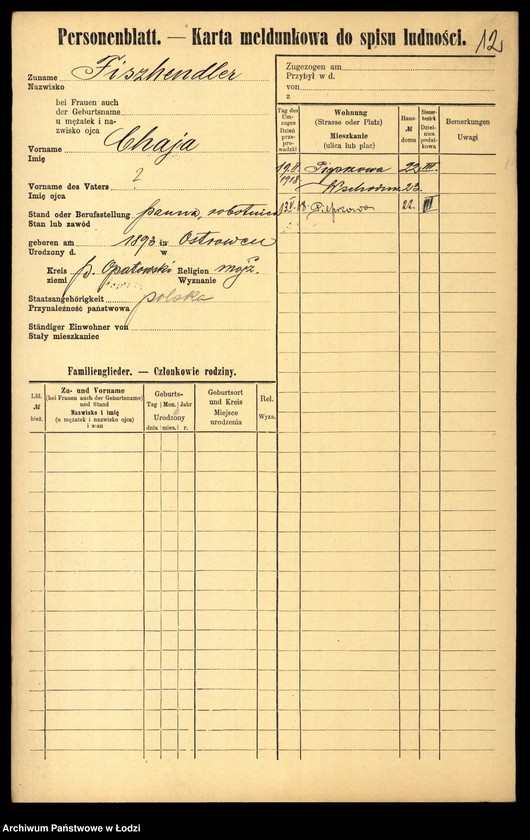 Personenblatt. — Karta meldunkowa do spisu ludności. 12
Zuname Fiszhendler
Nazwisko
bei Frauen auch
der Geburtsname
u mężatek i na-
zwisko ojca
Vorname Chaja
Imię
Vorname des Vaters ?
Imię ojca
Stand oder Berufsstellung panna, robotnica
Stan lub zawód
geboren am 1893 in Ostrowcu
Urodzony d. w
Kreis p. Opatowski Religion mojż.
ziemi Wyznanie
Staatsangehörigkeit polska
Przynależność państwowa
Ständiger Einwohner von
Stały mieszkaniec
Familienglieder. — Członkowie rodziny.
Lfd. № bież.
Zu- und Vorname
(bei Frauen auch der Geburtsname)
und Stand
Nazwisko i imię
(u mężatek i nazwisko ojca)
i stan
Geburts-
Tag Mon. Jahr
Urodzony
dnia mies. r.
Geburtsort
und Kreis
Miejsce
urodzenia
Rel.
Wyzn.
Zugezogen am
Przybył w d.
von
z
Tag des
Um-
zuges
Dzień
prze-
prowadzki
Wohnung
(Strasse oder Platz)
Mieszkanie
(ulica lub plac)
Haus-
№
domu
Steuer-
bezirk
Dziel-
nica
podat-
kowa
Bemerkungen
Uwagi
1918 22 III.
Wschodnia 23.
Pieprzowa 22. III
Archiwum Państwowe w Łodzi